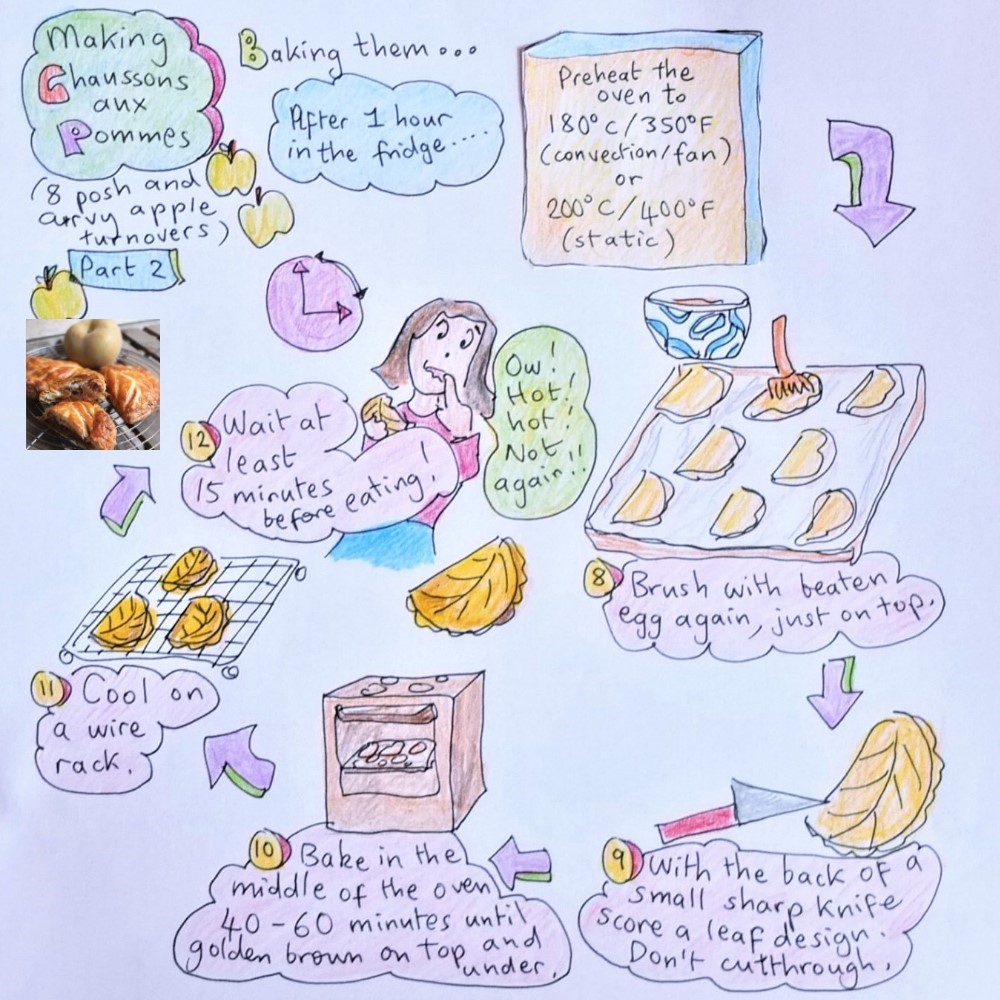 Making
Chaussons
aux
Pommes
(8 posh and
curvy apple
turnovers)
Part 2
Baking them...
After 1 hour
in the fridge....
Preheat the
oven to
180°C/350°F
(convection/fan)
or
200°C/400°F
(static)
8 Brush with beaten
egg again, just on top.
9 With the back of a
small sharp knife
score a leaf design.
Don't cutthrough.
10 Bake in the
middle of the oven
40-60 minutes until
golden brown on top and
under.
11 Cool on
a wire
rack.
12 Wait at
least
15 minutes
before eating!
Ow!
Hot!
hot!
Not
again!!